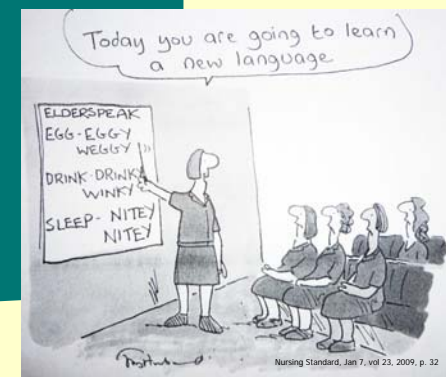 Today you are going to learn
a new language
ELDERSPEAK
EGG-EGGY
WEGGY
DRINK-DRINKY
WINKY
SLEEP- NITEY
NITEY
Nursing Standard, Jan 7, vol 23, 2009, p. 32